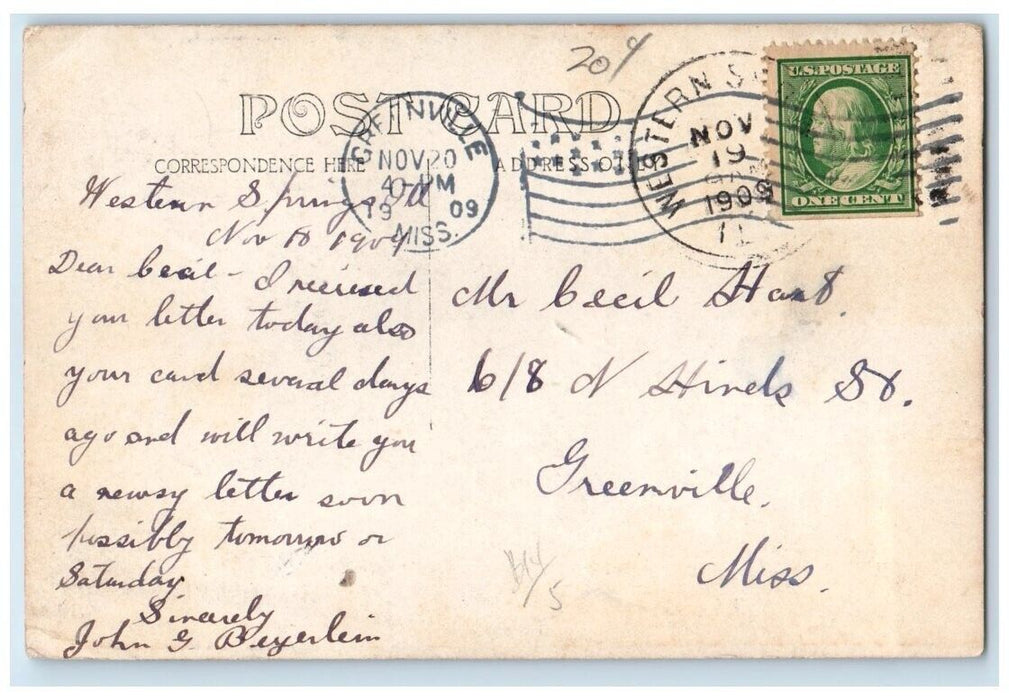 204
POST CARD
CORRESPONDENCE HERE
ADDRESS ONLY
GREENVILLE
NOV 20
4 PM
19 09
MISS.
WESTERN S
NOV
19
1909
U.S. POSTAGE
ONE CENT
Western Springs Ill
Nov 18 1909
Dear Cecil - I received
your letter today also
your card several days
ago and will write you
a newsy letter soon
possibly tomorrow or
Saturday
Sincerely
John G Beyerlein
Mr Cecil Hart
618 N Hinds St.
Greenville,
Miss.
5